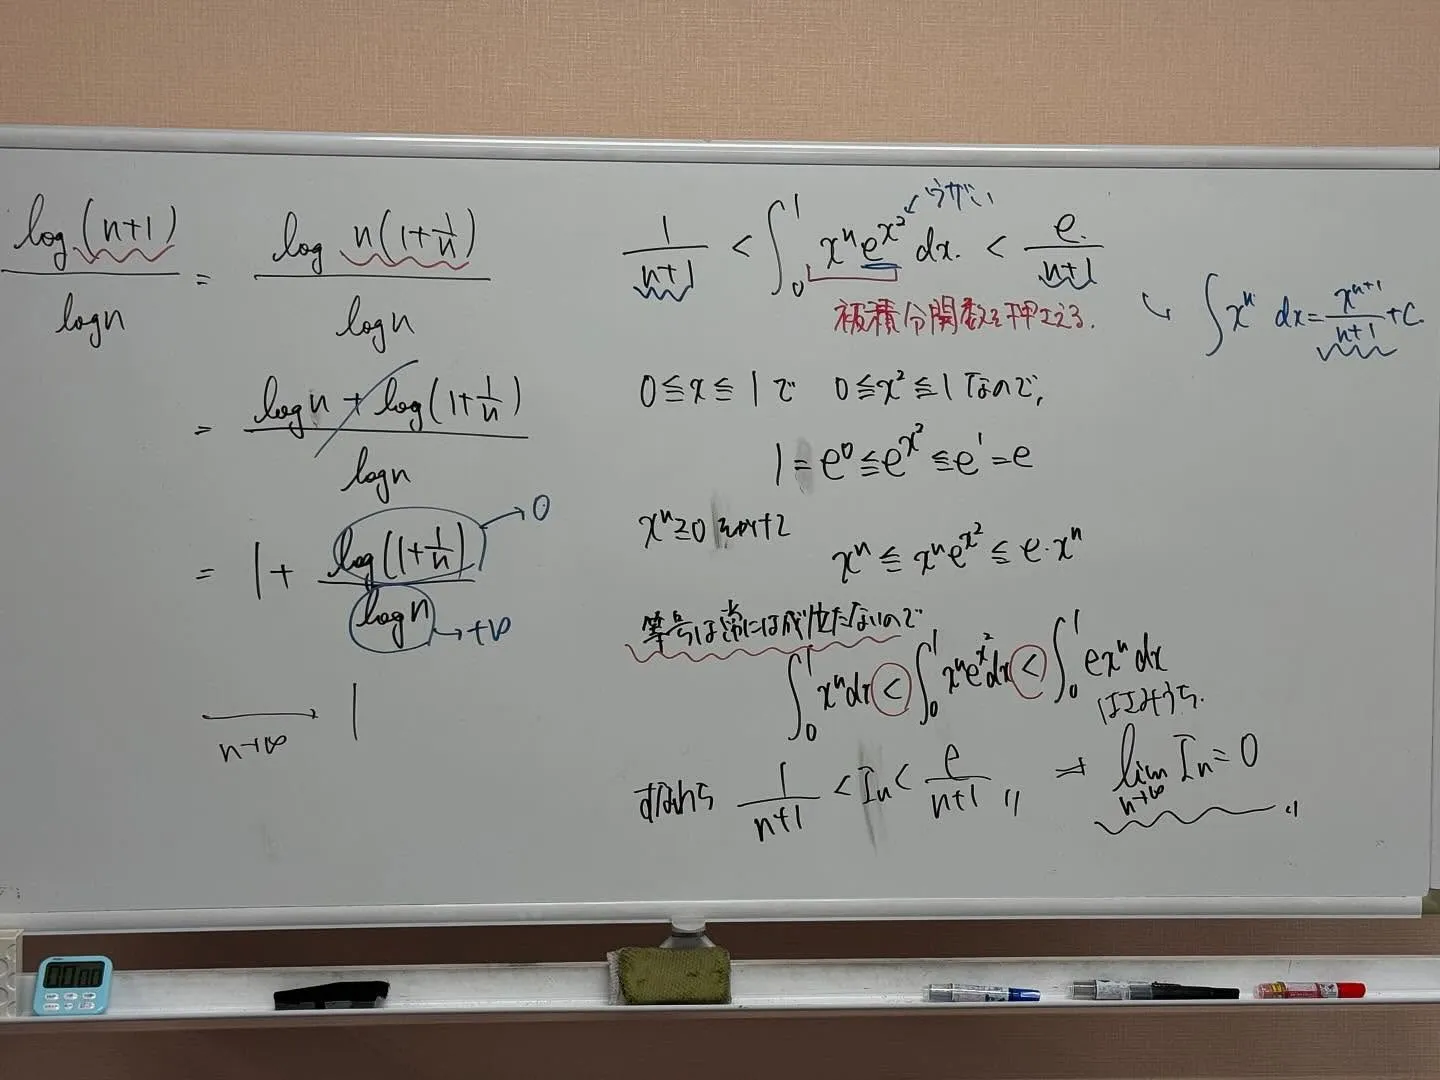 log(n+1)/log n = log n(1+1/n)/log n
= (log n + log(1+1/n))/log n
= 1 + log(1+1/n)/log n
→0
→+∞
→ 1
n→∞
1/(n+1) < ∫₀¹ xⁿe^(x²) dx. < e/(n+1)
被積分関数を押さえる.
↳ ∫xⁿ dx = x^(n+1)/(n+1) + C.
0≦x≦1で 0≦x²≦1なので,
1 = e⁰ ≦ e^(x²) ≦ e¹ = e
xⁿ≧0
xⁿ ≦ xⁿe^(x²) ≦ e・xⁿ
等号は常には成り立たないので
∫₀¹ xⁿdx < ∫₀¹ xⁿe^(x²)dx < ∫₀¹ exⁿdx
はさみうち.
すなわち 1/(n+1) < Iₙ < e/(n+1) 〃 ⇒ lim n→∞ Iₙ = 0 〃
00:00